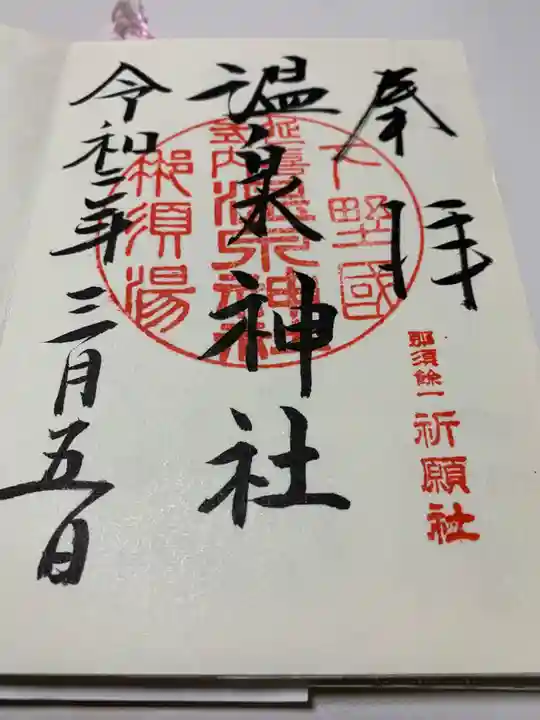 奉拝
下野國
延喜
式内
温泉神社
那須湯
温泉神社
那須餘一
祈願社
令和二年三月五日